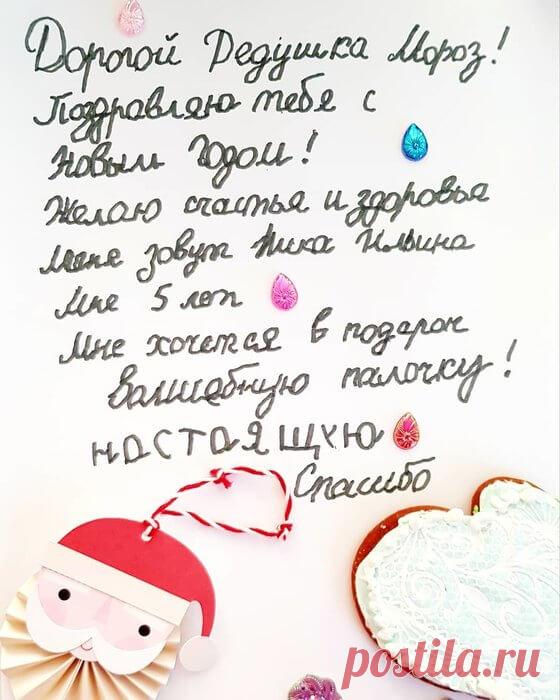 Дорогой Дедушка Мороз!
Поздравляю тебя с
Новым Годом!
Желаю счастья и здоровья
Меня зовут Ника Ильина
Мне 5 лет
Мне хочется в подарок
волшебную палочку!
настоящую
Спасибо
postila.ru